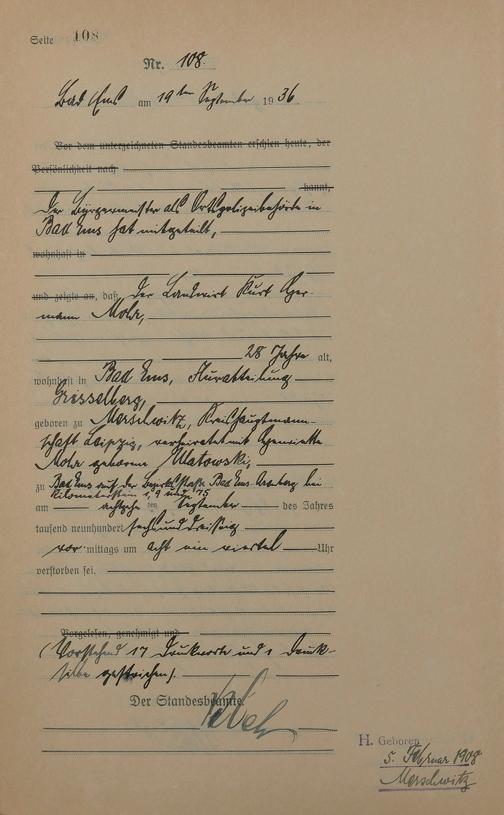 Seite 108
Nr. 108
Bad Ems am 19ten September 1936
Vor dem unterzeichneten Standesbeamten erschien heute, der
Persönlichkeit nach
kannt,
Der Bürgermeister als Ortspolizeibehörde in
Bad Ems hat mitgeteilt,
wohnhaft in
und zeigte an, daß der Landwirt Kurt Her-
mann Mohr,
28 Jahre alt,
wohnhaft in Bad Ems, Flurabteilung
geboren zu Merschwitz, Kreishauptmann-
schaft Leipzig, verheiratet mit Henriette
Mohr geborene
zu Bad Ems auf der Bezirksstraße Bad Ems Arzberg bei
Kilometerstein 1,9 und 75
am achtzehn ten September des Jahres
tausend neunhundert sechsunddreissig
vor mittags um acht ein viertel Uhr
verstorben sei.
Vorgelesen, genehmigt und
(Vorstehend 17 Druckworte und 1 Druck-
silbe gestrichen).
Der Standesbeamte.
H. Geboren
5. Februar 1908
Merschwitz